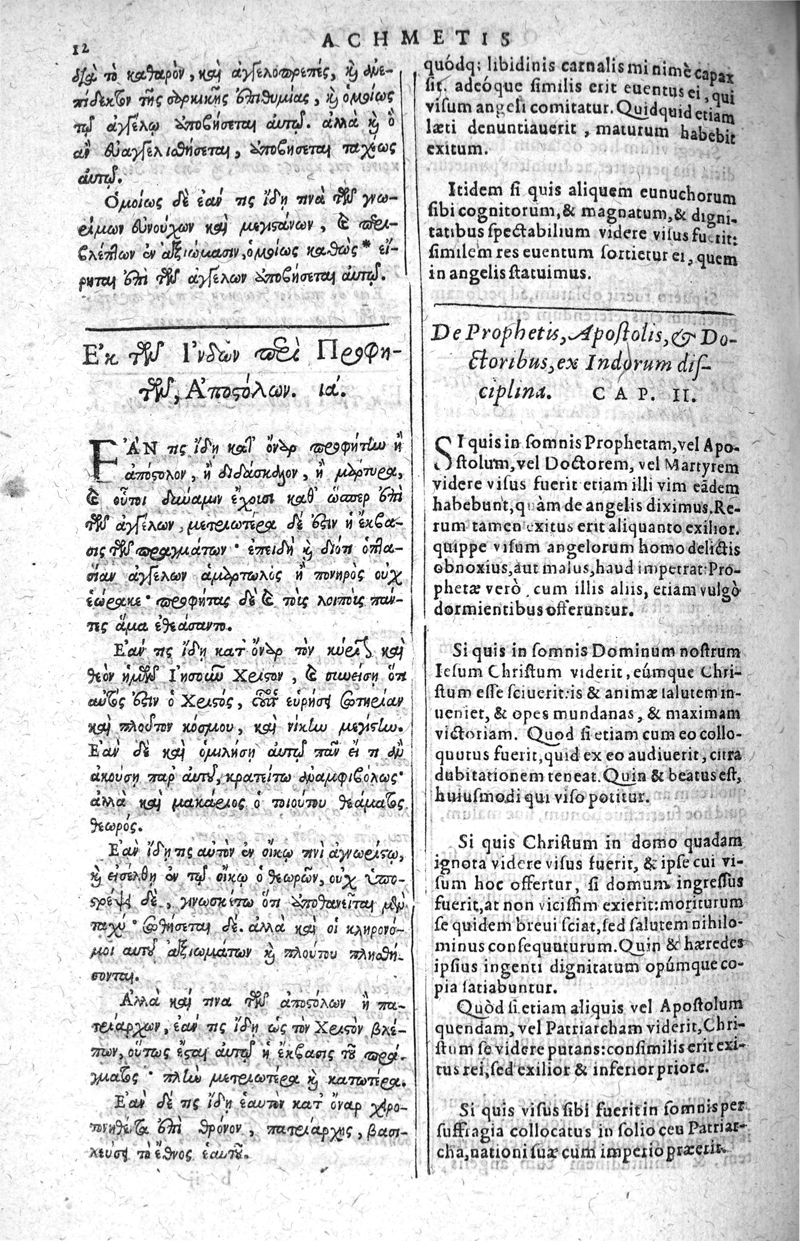 12
ACHMETIS
διὰ τὸ καθαρὸν, καὶ ἀγγελοπρεπές, καὶ ἀνε-
πίδεκτον τῆς σαρκικῆς ἐπιθυμίας, καὶ ὁμοίως
τῷ ἀγγέλῳ ἀποβήσεται αὐτῷ. ἀλλὰ καὶ ὃ
ἂν εὐαγγελισθήσεται, ἀποβήσεται ταχέως
αὐτῷ.
Ὁμοίως δὲ ἐάν τις ἴδῃ τινὰ τῶν γνω-
ρίμων εὐνούχων καὶ μεγιστάνων, καὶ περι-
βλέπτων ἐν ἀξιώμασιν, ὁμοίως καθὼς * εἴ-
ρηται ἐπὶ τῶν ἀγγέλων ἀποβήσεται αὐτῷ.
Ἐκ τῶν Ἰνδῶν περὶ Προφη-
τῶν, Ἀποστόλων. ια΄.
ἘΑΝ τις ἴδῃ κατ' ὄναρ προφήτην ἢ
ἀπόστολον, ἢ διδάσκαλον, ἢ μάρτυρα,
καὶ οὗτοι δύναμιν ἔχουσι καθ' ὥσπερ ἐπὶ
τῶν ἀγγέλων, μετριωτέρα δέ ἐστιν ἡ ἔκβα-
σις τῶν πραγμάτων· ἐπειδὴ καὶ διότι ὀπτα-
σίαν ἀγγέλων ἁμαρτωλὸς ἢ πονηρὸς οὐχ
ἑώρακε· προφήτας δὲ καὶ τοὺς λοιποὺς πάν-
τες ἅμα ἐθεάσαντο.
Ἐάν τις ἴδῃ κατ' ὄναρ τὸν κύριον καὶ
θεὸν ἡμῶν Ἰησοῦν Χριστὸν, καὶ συνείσῃ ὅτι
αὐτός ἐστιν ὁ Χριστὸς, οὗτος εὑρήσει σωτηρίαν
καὶ πλοῦτον κόσμου, καὶ νίκην μεγίστην.
Ἐὰν δὲ καὶ ὁμιλήσῃ αὐτῷ πᾶν εἴ τι ἂν
ἀκούσῃ παρ' αὐτοῦ, κρατείτω ἀναμφιβόλως·
ἀλλὰ καὶ μακάριος ὁ τοιούτου θεάματος
θεωρός.
Ἐὰν ἴδῃ τις αὐτὸν ἐν οἴκῳ τινὶ ἀγνωρίστῳ,
καὶ εἰσέλθῃ ἐν τῷ οἴκῳ ὁ θεωρῶν, οὐχ ὑπο-
στρέψῃ δὲ, γινωσκέτω ὅτι ἀποθανεῖται μὲν
ταχύ· σωθήσεται δέ. ἀλλὰ καὶ οἱ κληρονό-
μοι αὐτοῦ ἀξιωμάτων καὶ πλούτου πλησθή-
σονται.
Ἀλλὰ καὶ τινὰ τῶν ἀποστόλων ἢ πα-
τριάρχων, ἐάν τις ἴδῃ ὡς τὸν Χριστὸν βλέ-
πων, οὕτως ἔσται αὐτῷ ἡ ἔκβασις τοῦ πρά-
γματος· πλὴν μετριωτέρα καὶ κατωτέρα.
Ἐὰν δέ τις ἴδῃ ἑαυτὸν κατ' ὄναρ χειρο-
τονηθέντα ἐπὶ θρόνον, πατριάρχης, βασι-
λεύσει τὸ ἔθνος ἑαυτοῦ.
quódq; libidinis carnalis minimè capax
sit. adeóque similis erit euentus ei, qui
visum angeli comitatur. Quidquid etiam
læti denuntiauerit, maturum habebit
exitum.
Itidem si quis aliquem eunuchorum
sibi cognitorum, & magnatum, & digni-
tatibus spectabilium videre visus fuerit:
similem res euentum sortietur ei, quem
in angelis statuimus.
De Prophetis, Apostolis, & Do-
ctoribus, ex Indorum dis-
ciplina. CAP. II.
SI quis in somnis Prophetam, vel Apo-
stolum, vel Doctorem, vel Martyrem
videre visus fuerit etiam illi vim eādem
habebunt, quàm de angelis diximus. Re-
rum tamen exitus erit aliquanto exilior.
quippe visum angelorum homo delictis
obnoxius, aut malus, haud impetrat: Pro-
phetæ verò, cum illis aliis, etiam vulgò
dormientibus offeruntur.
Si quis in somnis Dominum nostrum
Iesum Christum viderit, eúmque Chri-
stum esse sciuerit: is & animæ salutem in-
ueniet, & opes mundanas, & maximam
victoriam. Quod si etiam cum eo collo-
quutus fuerit, quid ex eo audiuerit, citra
dubitationem teneat. Quin & beatus est,
huiusmodi qui viso potitur.
Si quis Christum in domo quadam
ignota videre visus fuerit, & ipse cui vi-
sum hoc offertur, si domum ingressus
fuerit, at non vicissim exierit: moriturum
se quidem breui sciat, sed salutem nihilo-
minus consequuturum. Quin & hæredes
ipsius ingenti dignitatum opúmque co-
pia satiabuntur.
Quòd si etiam aliquis vel Apostolum
quendam, vel Patriarcham viderit, Chri-
stum se videre putans: consimilis erit exi-
tus rei, sed exilior & inferior priore.
Si quis visus sibi fuerit in somnis per
suffragia collocatus in solio ceu Patriar-
cha, nationi suæ cum imperio præerit.